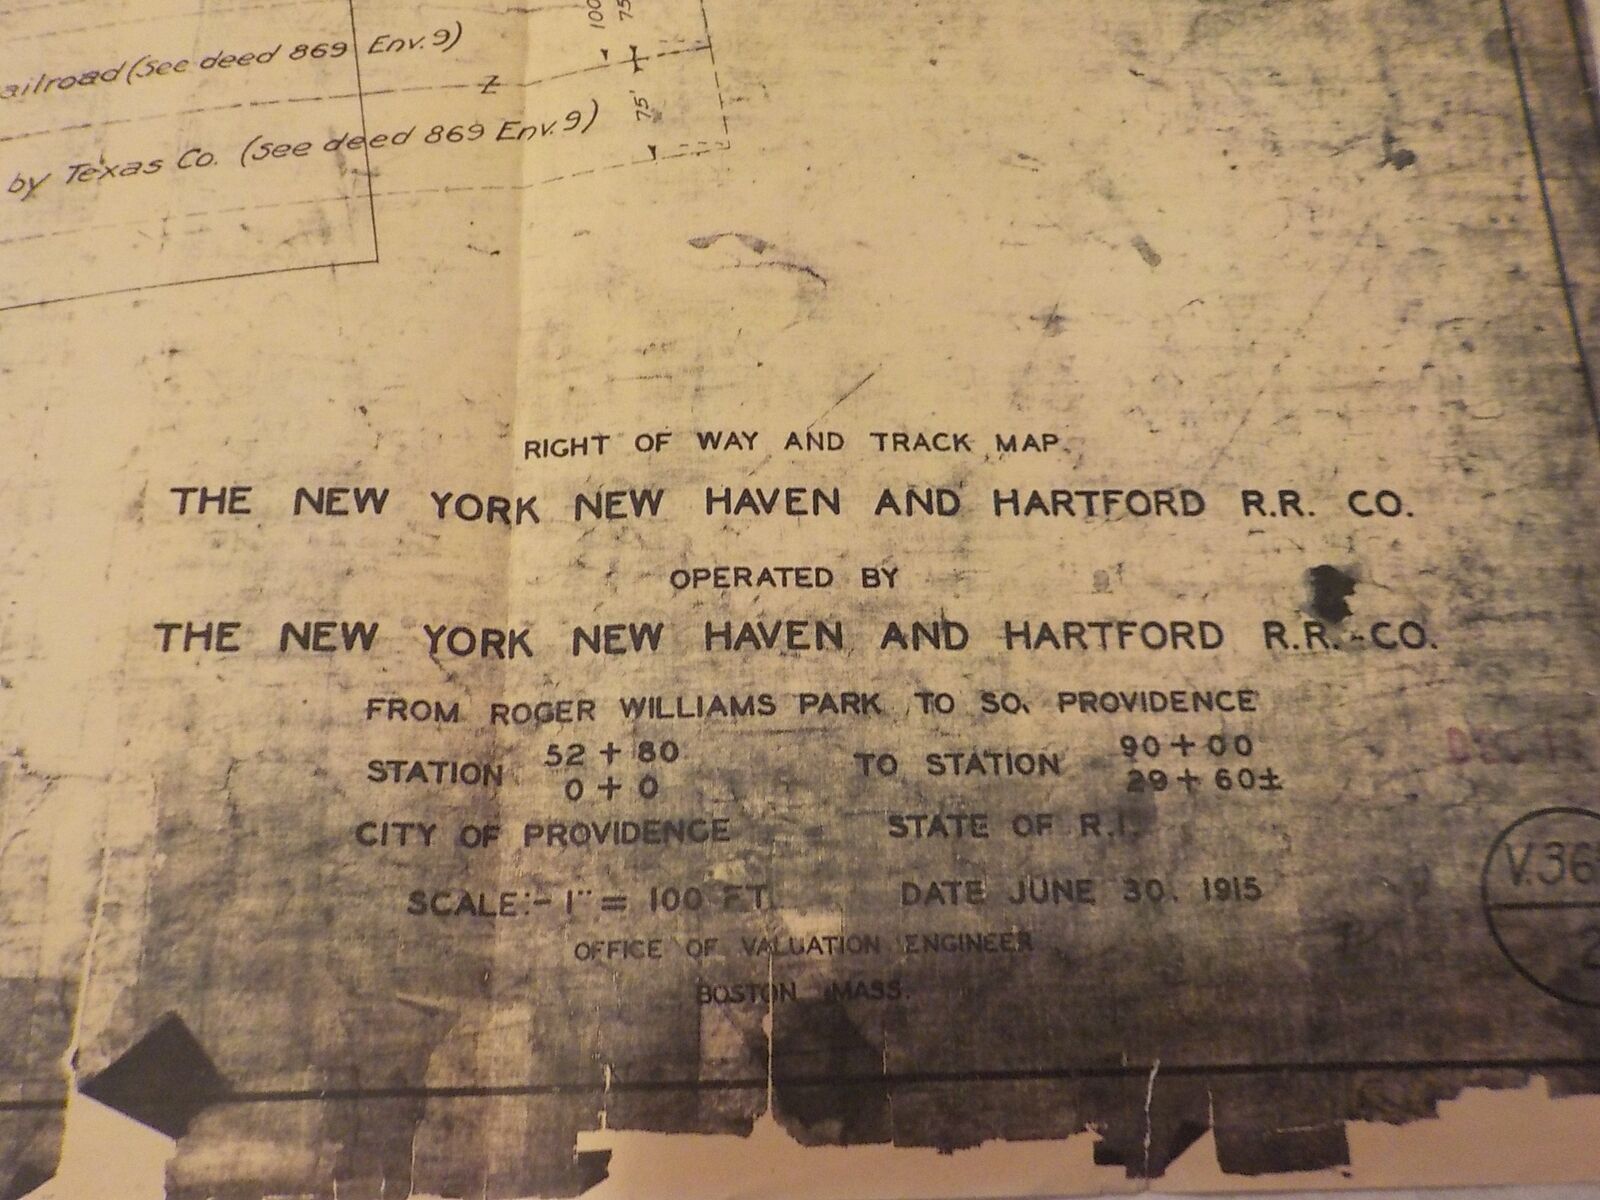 100
75
ailroad (See deed 869 Env. 9)
75'
by Texas Co. (See deed 869 Env. 9)
RIGHT OF WAY AND TRACK MAP.
THE NEW YORK NEW HAVEN AND HARTFORD R.R. CO.
OPERATED BY
THE NEW YORK NEW HAVEN AND HARTFORD R.R. CO.
FROM ROGER WILLIAMS PARK TO SO. PROVIDENCE
STATION 52 + 80 TO STATION 90 + 00
0 + 0 29 + 60±
CITY OF PROVIDENCE STATE OF R.I.
SCALE:- 1" = 100 FT. DATE JUNE 30. 1915
OFFICE OF VALUATION ENGINEER
BOSTON MASS.
V.36
2